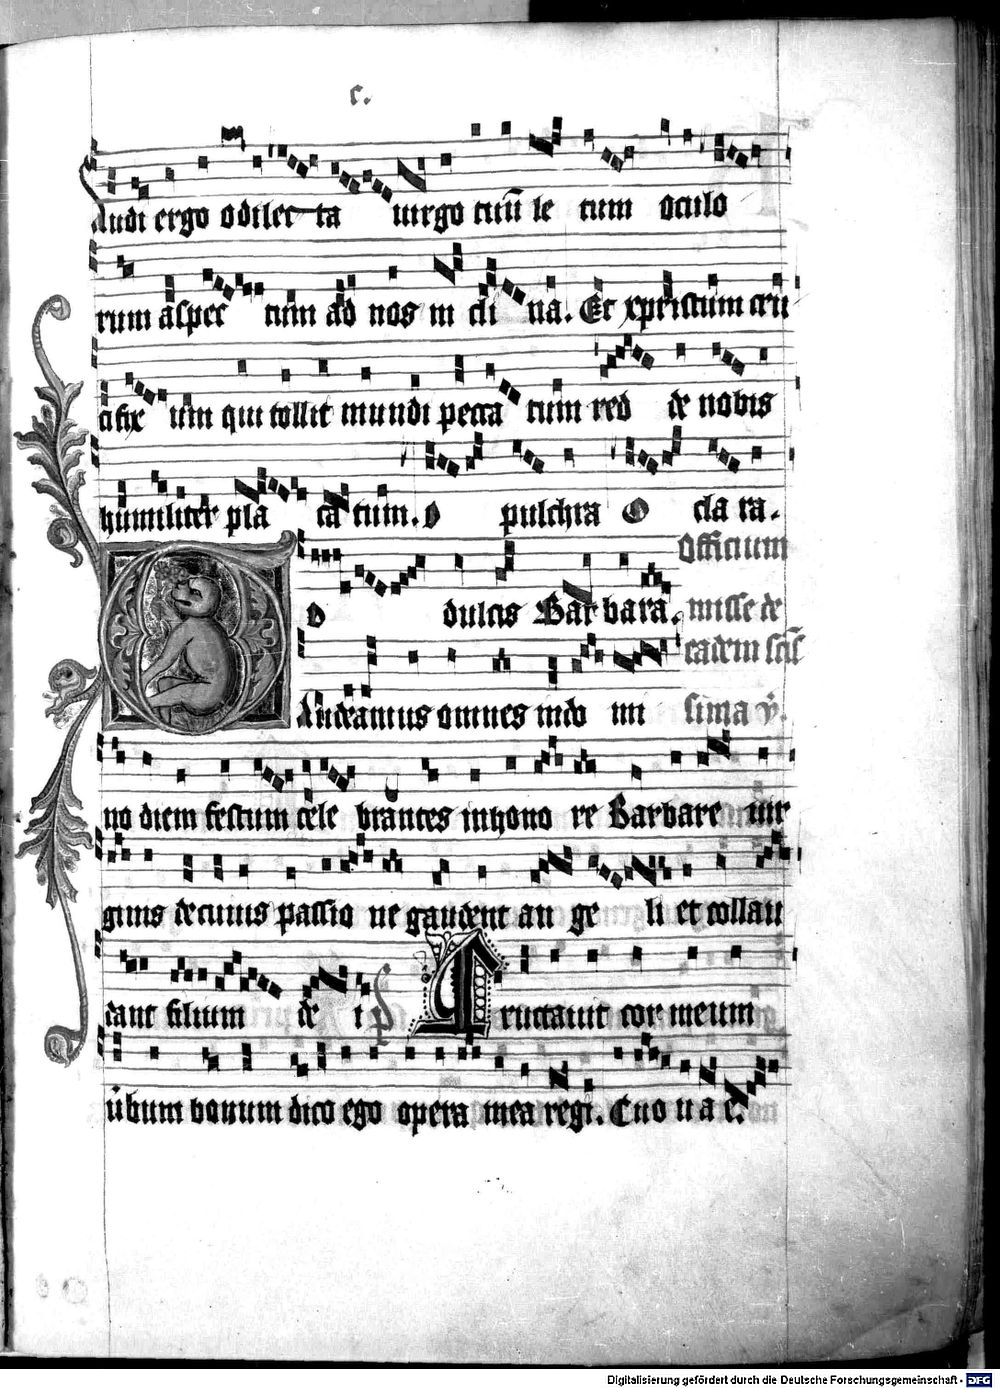 c.
Audi ergo o dilec ta uirgo tuū le tum oculo
rum aspec tum ad nos in cli na. Et xpristum cru
cifix um qui tollit mundi pecca tum red de nobis
humiliter pla ca tum. O pulchra O cla ra.
Officium
O dulcis Barbara. misse de
eadem
Gaudeamus omnes in do mi sima
no diem festum cele brantes in hono re Barbare uir
ginis de cuius passio ne gaudent an ge li et collau
dant filium de i p Eructauit cor meum
ūbum bonum dico ego opera mea regi. Euo u a e.
Digitalisierung gefördert durch die Deutsche Forschungsgemeinschaft - DFG